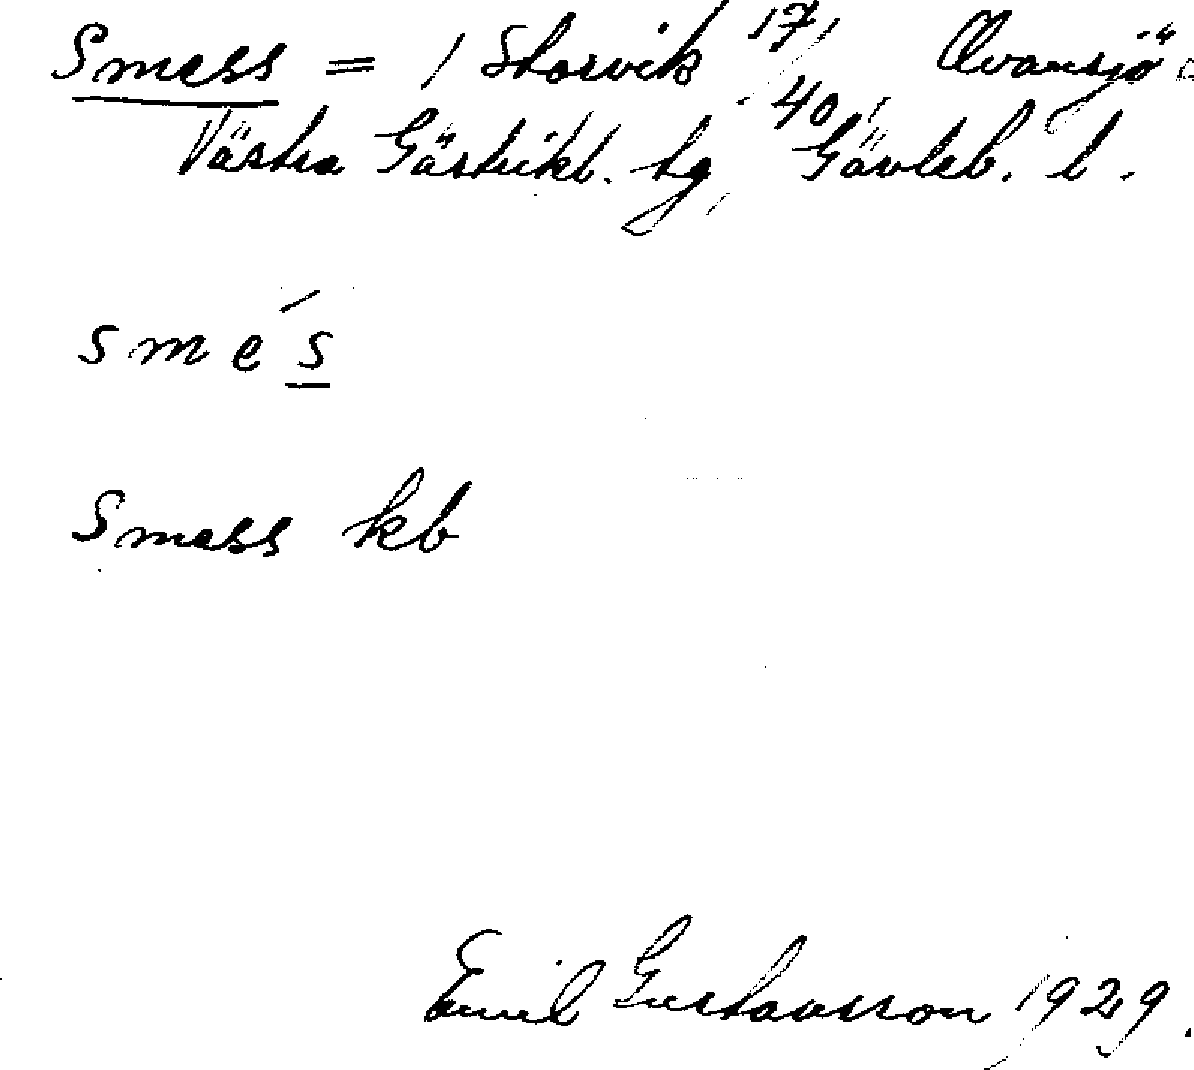 Smess = 1 Storvik 17/40, Ovansjö
Västra Gästrikl. tg, Gävleb. l.
smé́s
Smess kb
Emil Gustavsson 1929.